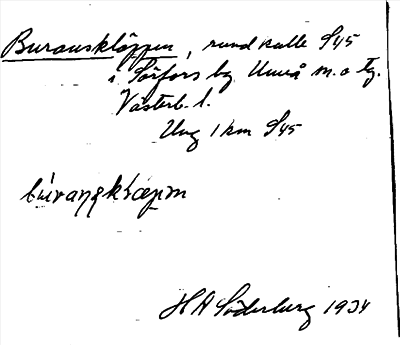 Buransklöppen, rund kulle S45
i Sörfors by Umeå m. o tg.
Västerb. l.
Ung 1 km S45
H A Söderberg 1934